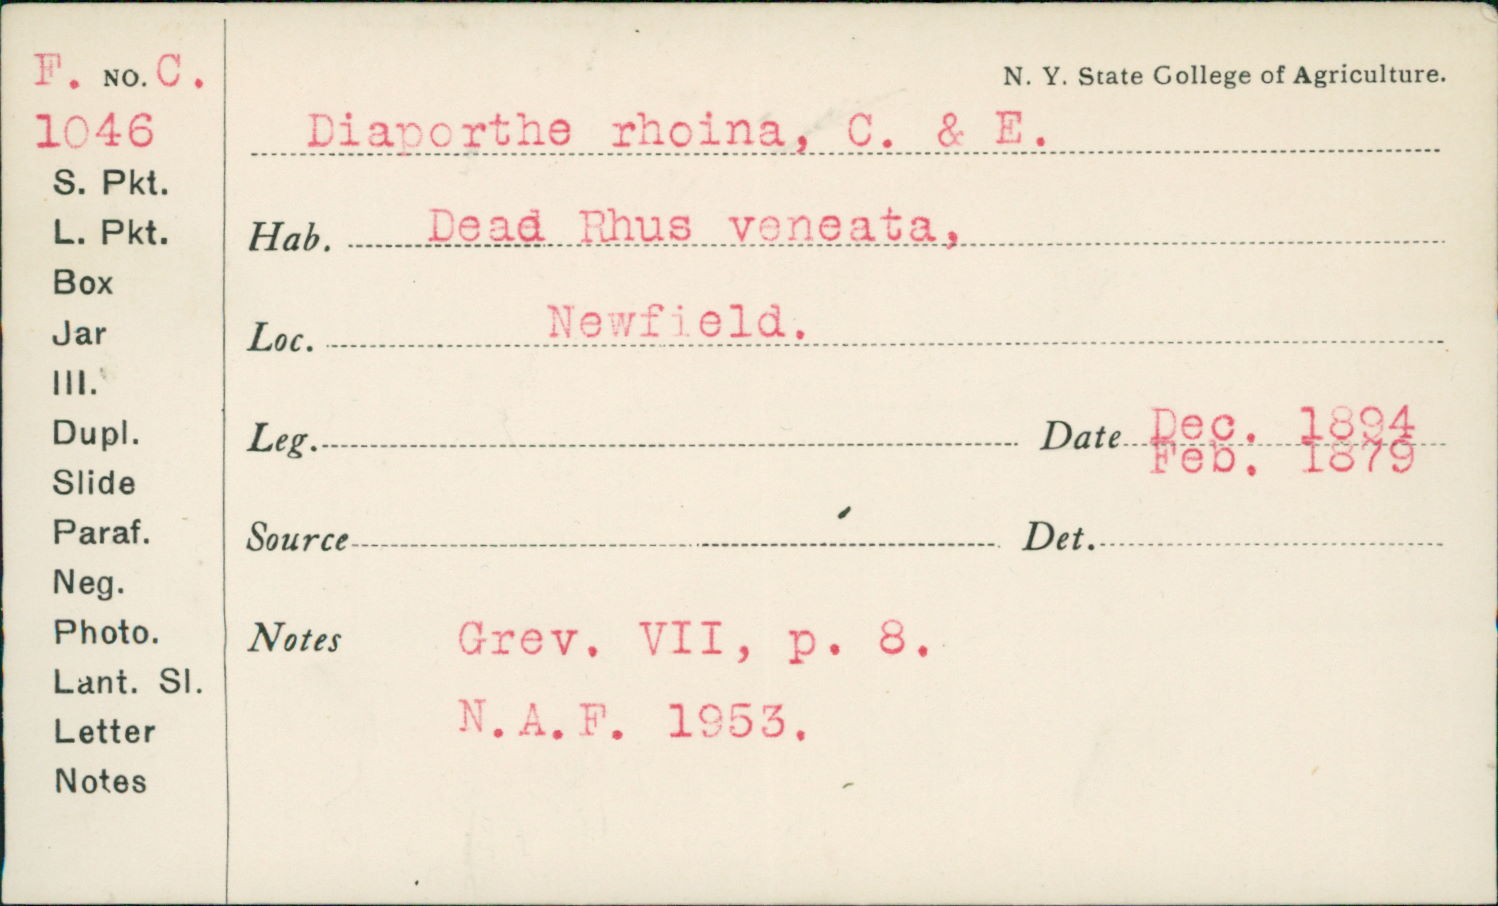 F. NO. C.
1046
S. Pkt.
L. Pkt.
Box
Jar
Ill.
Dupl.
Slide
Paraf.
Neg.
Photo.
Lant. Sl.
Letter
Notes
N. Y. State College of Agriculture.
Diaporthe rhoina, C. & E.
Hab. Dead Rhus veneata,
Loc. Newfield.
Leg. Date Dec. 1894
Feb. 1879
Source Det.
Notes Grev. VII, p. 8.
N.A.F. 1953.